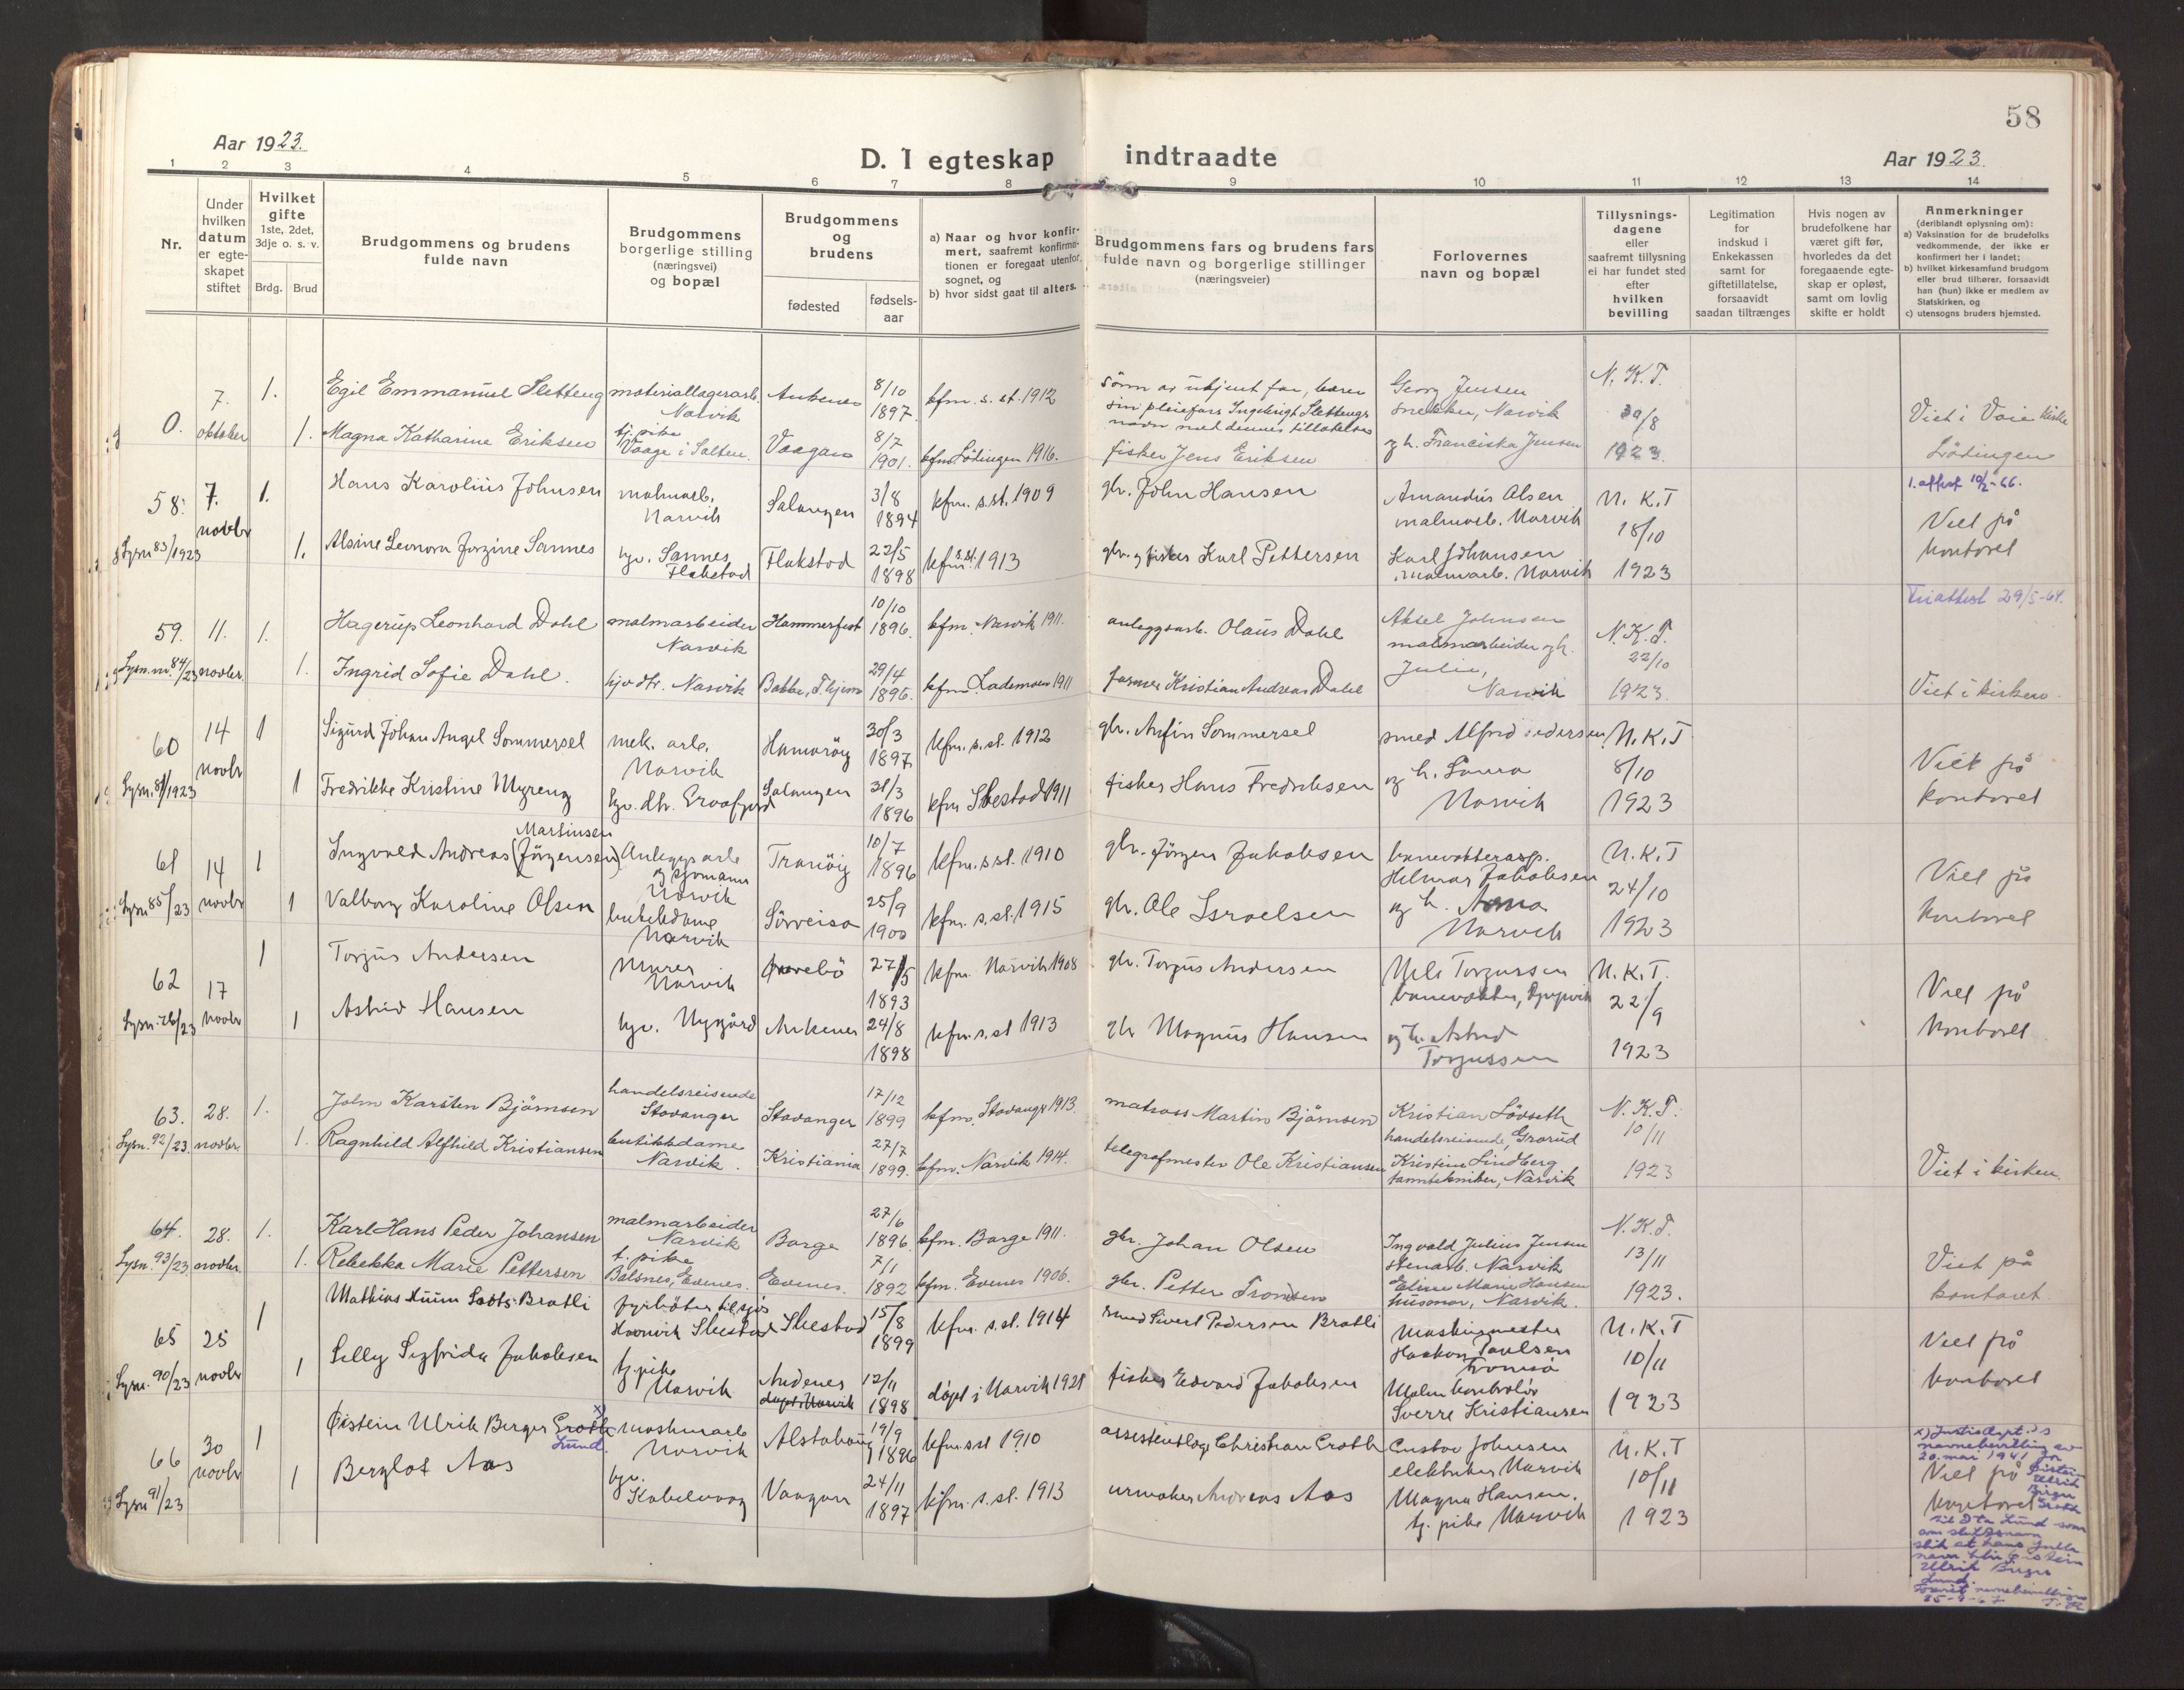 58
Aar 1923.
D. I egteskap indtraadte
Aar 1923.
1 2 3 4 5 6 7 8 9 10 11 12 13 14
Nr.
Under hvilken datum er egteskapet stiftet
Hvilket gifte 1ste, 2det, 3dje o. s. v.
Brdg. Brud
Brudgommens og brudens fulde navn
Brudgommens borgerlige stilling (næringsvei) og bopæl
Brudgommens og brudens
fødested
fødsels-aar
a) Naar og hvor konfirmert, saafremt konfirmationen er foregaat utenfor sognet, og
b) hvor sidst gaat til alters.
Brudgommens fars og brudens fars fulde navn og borgerlige stillinger (næringsveier)
Forlovernes navn og bopæl
Tillysningsdagene eller saafremt tillysning ei har fundet sted efter hvilken bevilling
Legitimation for indskud i Enkekassen samt for giftetillatelse, forsaavidt saadan tiltrænges
Hvis nogen av brudefolkene har været gift før, hvorledes da det foregaaende egteskap er opløst, samt om lovlig skifte er holdt
Anmerkninger (deriblandt oplysning om):
a) Vaksination for de brudefolks vedkommende, der ikke er konfirmert her i landet;
b) hvilket kirkesamfund brudgom eller brud tilhører, forsaavidt han (hun) ikke er medlem av Statskirken, og
c) utensogns bruders hjemsted.
0. 7. oktober 1. Egil Emmanuel Sletteng materiallagerarb. Narvik Ankenes 8/10 1897. kfm. s. st. 1912 sønn av ukjent far, bærer sin pleiefars Ingebrigt Slettengs navn med dennes tillatelse Georg Jensen snekker, Narvik N. K. T. 30/8 1923. Viet i Lødingen
1. Magna Katharine Eriksen tj. pike Vaage i Salten. Vaagan 8/7 1901. kfm. Lødingen 1916. fisker Jens Eriksen og h. Franciska Jensen
58. 7. novbr 1. Hans Karolius Johnsen malmarb. Narvik Salangen 3/8 1894 kfm. s. st. 1909 gbr. John Hansen Amandus Olsen malmarb. Narvik N. K. T 18/10 1923 Viet på kontoret
Lysn 83/1923 1. Alsine Leonora Jorgine Sannes hjv. Sannes, Flakstad Flakstad 22/5 1898 kfm. s.st. 1913 gbr. og fisker Karl Pettersen Karl Johansen malmarb. Narvik
59. 11. novbr. 1. Hagerup Leonhard Dahl malmarbeider Narvik Hammerfest 10/10 1896. kfm. Narvik 1911. anleggsarb. Olaus Dahl Aksel Johnsen malmarbeider og h. Julie, Narvik N. K. T. 22/10 1923. Friattest 29/5-64. Viet i kirken.
Lysn. nr. 84/23 1. Ingrid Sofie Dahl. hjv. dtr. Narvik Bakke, T.hjem 29/4 1896. kfm. Lademoen 1911 farmer Kristian Andreas Dahl
60 14 novbr 1 Sigurd Johan Angel Sommersel mek. arb. Narvik Hamarøy 30/3 1897 kfm. s. st. 1912 gbr. Anfin Sommersel smed Alfred Pedersen og h. Laura Narvik N. K. T 8/10 1923 Viet på kontoret
Lysn. 81/1923 1 Fredrikke Kristine Myreng hjv. dtr. Salangen 31/3 1896 kfm Ibestad 1911 fisker Hans Fredriksen
61 14 novbr 1 Ingvald Andreas (Jørgensen) Martinsen Anleggsarb og sjømann Narvik Tranøy 10/7 1896 kfm. s. st. 1910 gbr. Jørgen Jakobsen banevokterasp. Helmar Jakobsen og h. Anna Narvik N. K. T 24/10 1923 Viet på kontoret
Lysn 85/23 1 Valborg Karoline Olsen butikkdame Narvik Sørreisa 25/9 1900 kfm. s. st. 1915 gbr. Ole Israelsen
62 17 novbr 1 Torgus Andersen Murer Narvik 27/5 1893 kfm. Narvik 1908 gbr. Torgus Andersen Nils Torgussen banevokter, og h. Astrid Torgussen N. K. T. 22/9 1923 Viet på kontoret
Lysn. 76/23 1 Astrid Hansen hjv. Nygård Ankenes 24/8 1898 kfm. s. st 1913 gbr Magnus Hansen
63. 28. novbr. 1. John Karsten Bjørnsen handelsreisende Stavanger Stavanger 17/12 1899 kfm. Stavanger 1913. matros Martin Bjørnsen Kristian Løvseth handelsreisende, Grorud N. K. T. 10/11 1923 Viet i kirken.
Lysn. 92/23. 1. Ragnhild Alfhild Kristiansen butikkdame Narvik. Kristiania 27/7 1899. kfm. Narvik 1914. telegrafmester Ole Kristiansen Kristine Lindberg tanntekniker, Narvik
64. 28. novbr. 1. Karl Hans Peder Johansen malmarbeider Narvik Borge 27/6 1896. kfm. Borge 1911. gbr. Johan Olsen Ingvald Julius Jensen stenarb. Narvik N. K. T. 13/11 1923. Viet på kontoret.
Lysn. 93/23 1. Rebekka Marie Pettersen t. pike Balsnes, Evenes. Evenes. 7/1 1892 kfm. Evenes 1906. gbr. Petter Tronsen Eline Marie Hansen husmor, Narvik.
65 25 novbr 1 Mathias Bratli fyrbøter til sjøs Ibestad Ibestad 15/8 1899 kfm. s. st. 1914 smed Sivert Pedersen Bratli Maskinmester Haakon Paulsen Tromsø N. K. T 10/11 1923 Viet på kontoret
Lysn. 90/23 1 Lilly Sigfrida Jakobsen tj. pike Narvik Andenes 12/11 1898 døpt i Narvik 1921 fisker Edvard Jakobsen Malmkontrolør Sverre Kristiansen
66 30 novbr 1 Øistein Ulrik Berger Groth x) Lund. maskinarb Narvik Alstahaug 19/9 1896 kfm s st 1910 Christian Groth Gustav Johnsen elektriker Narvik N. K. T 10/11 1923 Viet på kontoret
Lysn 91/23 1 Bergliot Aas hjv. Kabelvaag Vaagan 24/11 1897 kfm. s. st. 1913 urmaker Andreas Aas Magna Hansen. tj. pike Narvik
x) Justisdept.'s navnebevilling av 20. mai 1941 for Øistein Ulrik Birger Groth til å ta Lund som slektsnavn slik at hans fulle navn blir Øistein Ulrik Birger Lund.